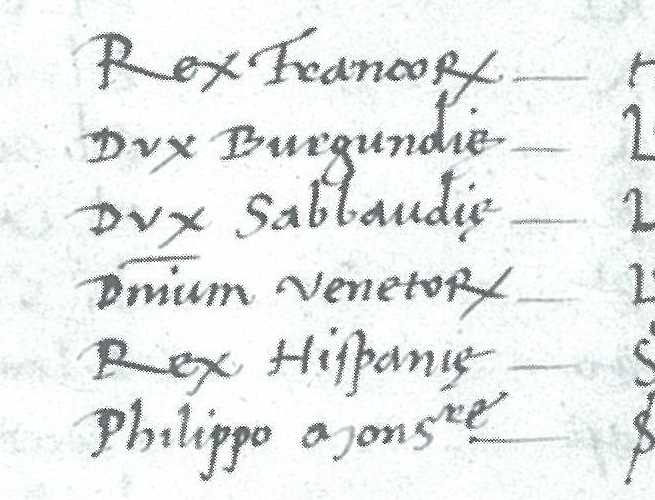 Rex Francoꝝ —
Dvx Burgundię —
Dvx Sabbaudię —
Dn̄ium Venetoꝝ —
Rex Hiſpanię —
Philippo Monsʳᵉ —